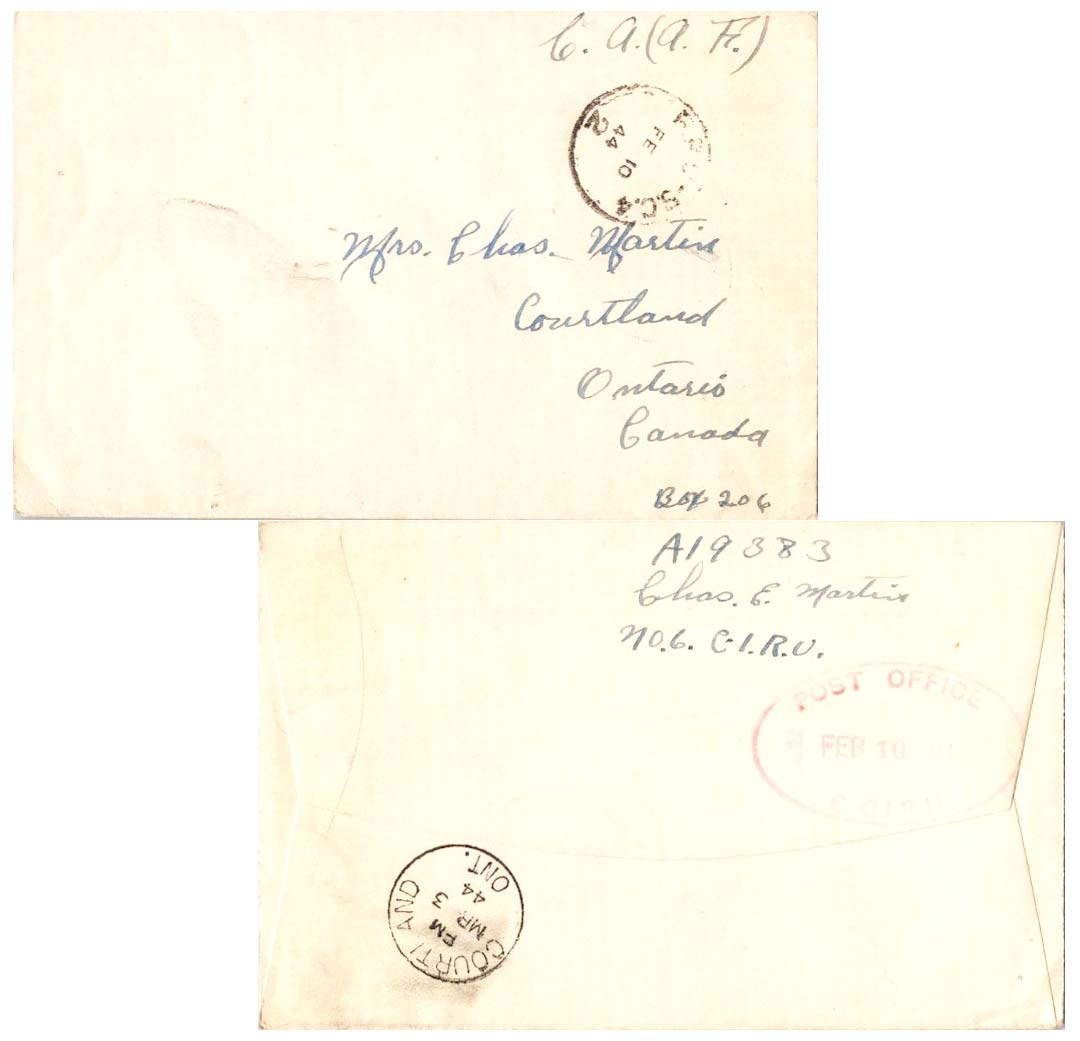 C. A. (A. F.)
S.C. 4
FE 10
44
2
Mrs. Chas. Martin
Courtland
Ontario
Canada
Box 206
A19383
Chas. E. Martin
No. 6. C.I.R.U.
POST OFFICE
FEB 10
COURTLAND
PM
MR 3
44
ONT.